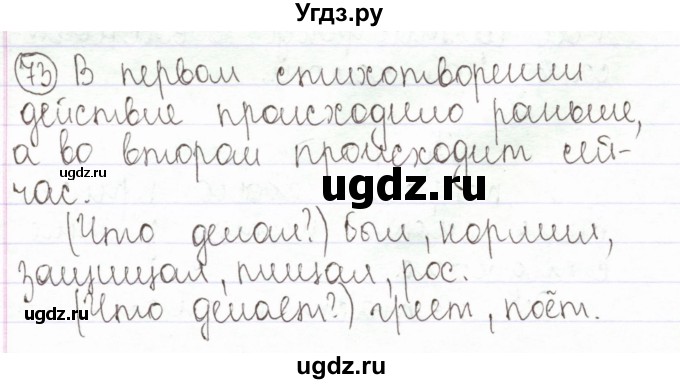 Угдз.ру
73 В первом стихотворении
действие происходило раньше,
а во втором происходит сей-
час.
ugdz.ru
ugdz.ru
(Что делал?) был, кормил,
защищал, пищал, рос.
ugdz.ru
ugdz.ru
(Что делает?) греет, поёт.
ugdz.ru